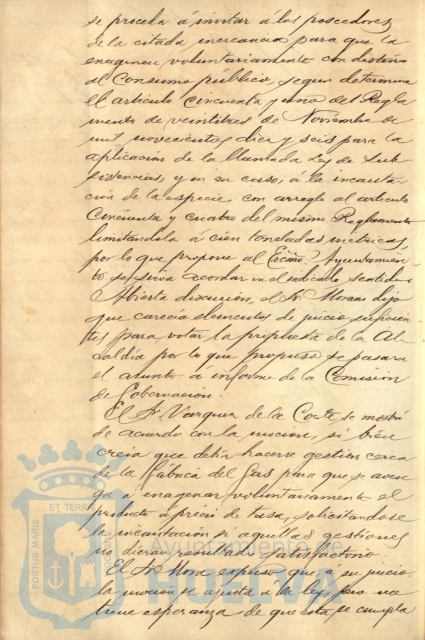 se proceda á invitar á los poseedores
de la citada mercancia para que la
enagenen voluntariamente con destino
al Consumo publico, segun determina
el articulo cincuenta y uno del Regla
mento de veintitres de Noviembre de
mil novecientos diez y seis para la
aplicación de la llamada Ley de Sub
sistencias, y en su caso, á la incauta
ción de la especie, con arreglo al articulo
Cincuenta y cuatro del mismo Reglamento
limitandola á cien toneladas metricas,
por lo que propone al Excmo. Ayuntamien
to se sirva acordar en el indicado sentido
Abierta discusión, el Sr. Morano dijo
que carecia elementos de juicio suficien
tes para votar la propuesta de la Al
caldia por lo que propuso se pasara
el asunto á informe de la Comisión
de Gobernación.
El Sr. Vazquez de la Corte, se mostró
de acuerdo con la mocion, si bien
creia que debia hacerse gestión cerca
de la Fábrica del Gas para que se aven
ga á enagenar voluntariamente el
producto á precio de tasa, solicitandose
la incautación si aquellas gestiones
no dieran resultado satisfactorio.
El Sr. Mora expuso que á su juicio
la mocion se ajusta á la ley pero no
tiene esperanza de que esta se cumpla
PORTUS MARIS
ET TERRÆ
Ayuntamiento de
HUELVA